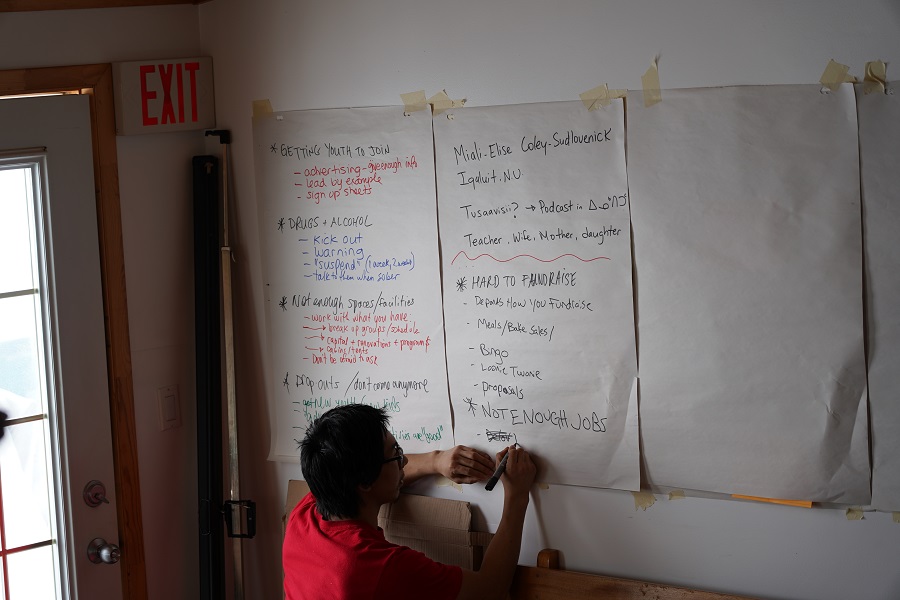 EXIT
* GETTING YOUTH TO JOIN
- advertising - give enough info
- lead by example
- sign up sheets
* DRUGS + ALCOHOL
- Kick out
- warning
- "suspend" (1 week, 2 weeks)
- talk to them when sober
* Not enough spaces/facilities
- work with what you have
→ break up groups/schedule
→ capital + renovations + program $
→ cabins/tents
- Don't be afraid to ask
* Drop outs / don't come anymore
Miali-Elise Coley-Sudlovenick
Iqaluit, NU
Tusaavisii? → Podcast in ᐃᓄᒃᑎᑐᑦ
Teacher, Wife, Mother, daughter
* HARD TO FUNDRAISE
- Depends How you Fundraise
- Meals/Bake Sales/
- Bingo
- Loonie Twoonie
- proposals
* NOT ENOUGH JOBS